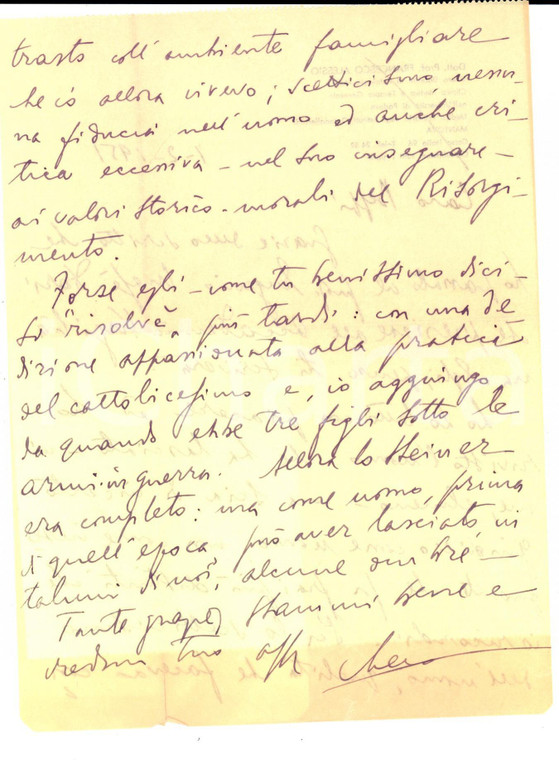 trasto coll'ambiente famigliare
che io allora vivevo; scetticismo nessu-
na fiducia nell'uomo ed anche cri-
tica eccessiva - nel suo insegnare -
ai valori storico-morali del Risorgi-
mento.
Forse egli - come tu benissimo dici -
si "risolvè" più tardi: con una de
dizione appassionata alla pratica
del cattolicesimo e, io aggiungo,
da quando ebbe tre figli sotto le
armi in guerra. Allora lo Steiner
era completo: ma come uomo, prima
di quell'epoca può aver lasciato, in
taluni di noi, alcune ombre -
Tante grazie, stammi bene e
credimi tuo aff